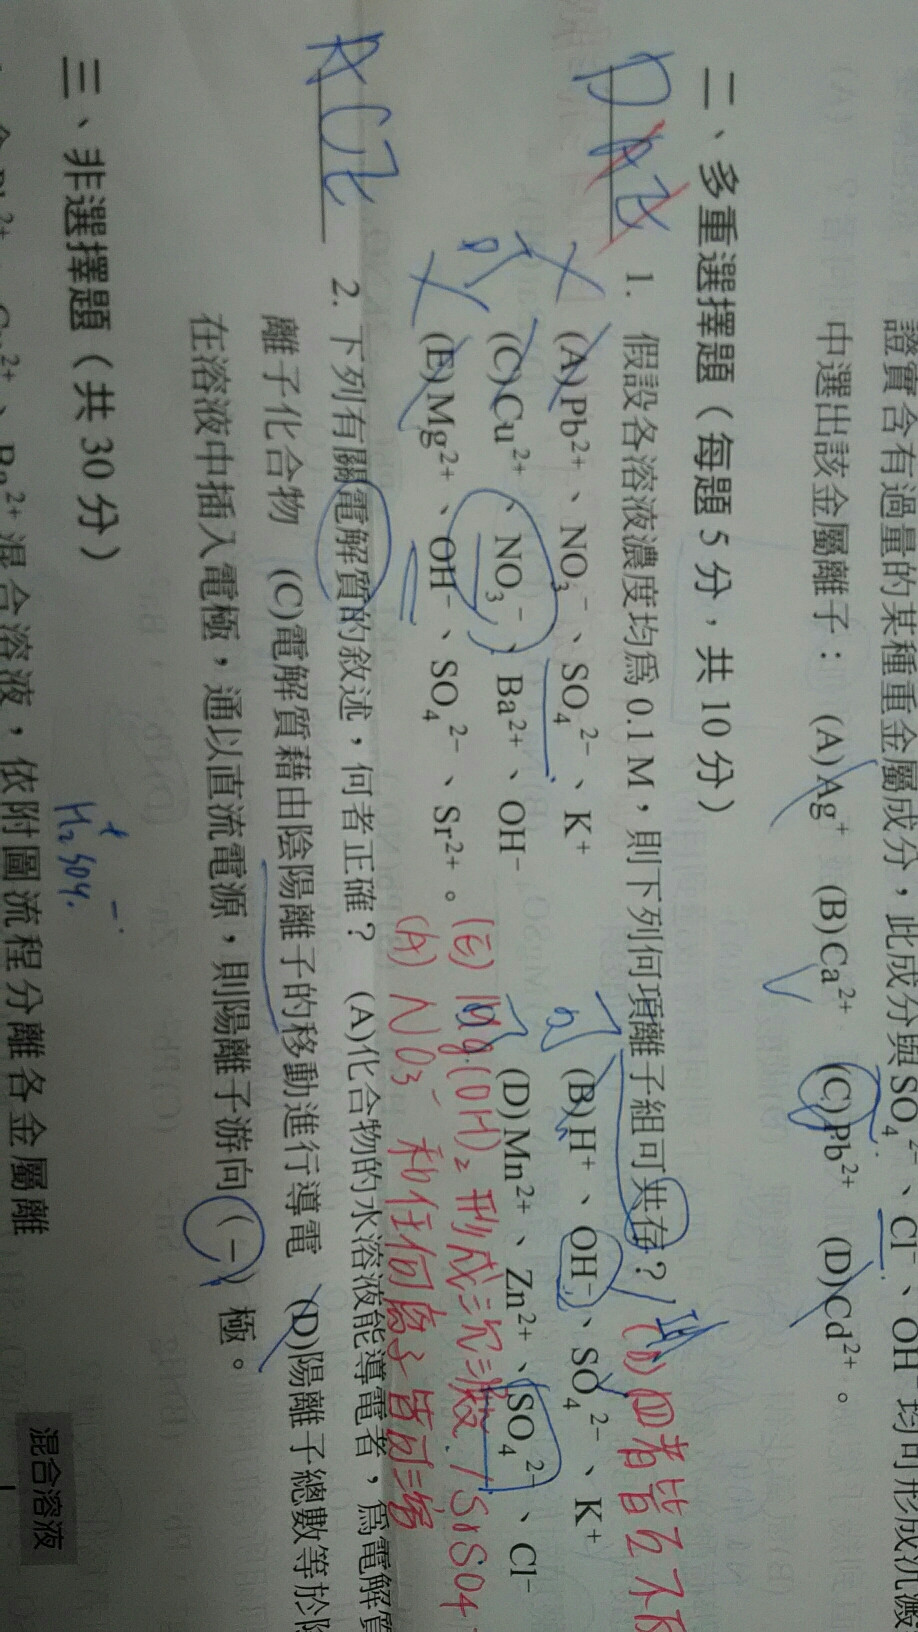 證實含有過量的某種重金屬成分，此成分與SO₄²⁻、Cl⁻、OH⁻均可形成沉澱
中選出該金屬離子： (A)Ag⁺ (B)Ca²⁺ (C)Pb²⁺ (D)Cd²⁺。
二、多重選擇題（每題5分，共10分）
DAE 1. 假設各溶液濃度均為0.1 M，則下列何項離子組可共存？
(b)四者皆互不
(A)Pb²⁺、NO₃⁻、SO₄²⁻、K⁺ (B)H⁺、OH⁻、SO₄²⁻、K⁺
(C)Cu²⁺、NO₃⁻、Ba²⁺、OH⁻ (D)Mn²⁺、Zn²⁺、SO₄²⁻、Cl⁻
(E)Mg²⁺、OH⁻、SO₄²⁻、Sr²⁺。
(E) Mg(OH)₂ 形成沉澱 / SrSO₄
(A) NO₃⁻ 和任何離子皆可溶
ACE 2. 下列有關電解質的敘述，何者正確？ (A)化合物的水溶液能導電者，為電解質
離子化合物 (C)電解質藉由陰陽離子的移動進行導電 (D)陽離子總數等於
在溶液中插入電極，通以直流電源，則陽離子游向(－)極。
三、非選擇題（共30分）
H₂⁺SO₄⁻
Ba²⁺混合溶液，依附圖流程分離各金屬離
混合溶液